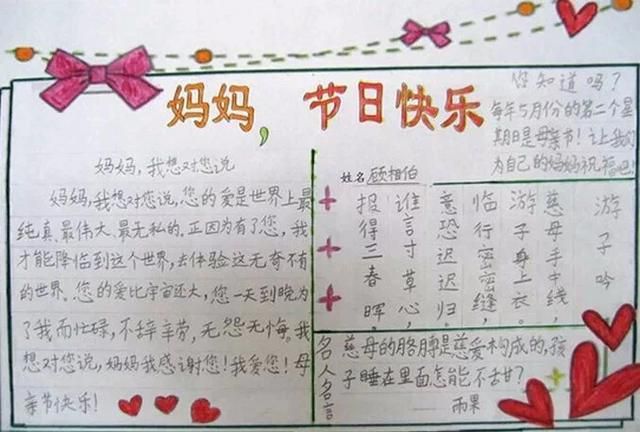 妈妈，节日快乐
您知道吗？
每年5月份的第二个星
期日是母亲节！让我们
为自己的妈妈祝福吧
妈妈，我想对您说
妈妈，我想对您说，您的爱是世界上最
纯真、最伟大、最无私的，正因为有了您，我
才能降临到这个世界，去体验这无奇不有
的世界。您的爱比宇宙还大，您一天到晚为
了我而忙碌，不辞辛劳，无怨无悔。我
想对您说，妈妈我感谢您！我爱您！母
亲节快乐！
姓名 顾相伯
游子吟
慈母手中线，
游子身上衣。
临行密密缝，
意恐迟迟归。
谁言寸草心，
报得三春晖。
名人名言
慈母的胳膊是慈爱构成的，孩
子睡在里面怎能不甘？
雨果